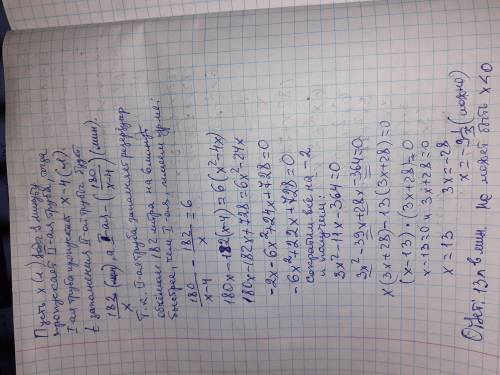 Пусть x (л) вода в минуту
пропускает II-ая труба, тогда
I-ая труба пропускает x-4 (л).
t заполнения II-ая труба будет
182/x (мин), а I-ая - (180/(x-4)) (мин).
Т.к. II-ая труба заполняет резервуар
объёмом 182 литра на 6 минут
быстрее, чем I-ая, имеем ур-ие:
180/(x-4) - 182/x = 6
180x-182(x-4)=6(x²-4x)
180x-182x+728=6x²-24x
-2x-6x²+24x+728=0
-6x²+22x+728=0
Сократим всё на -2
и получим:
3x²-11x-364=0
3x²-39x+28x-364=0
x(3x+28)-13(3x+28)=0
(x-13)·(3x+28)=0
x-13=0 и 3x+28=0
x=13 3x=-28
x=-9 1/3 (ложно)
Ответ: 13 л в мин. не может быть x<0